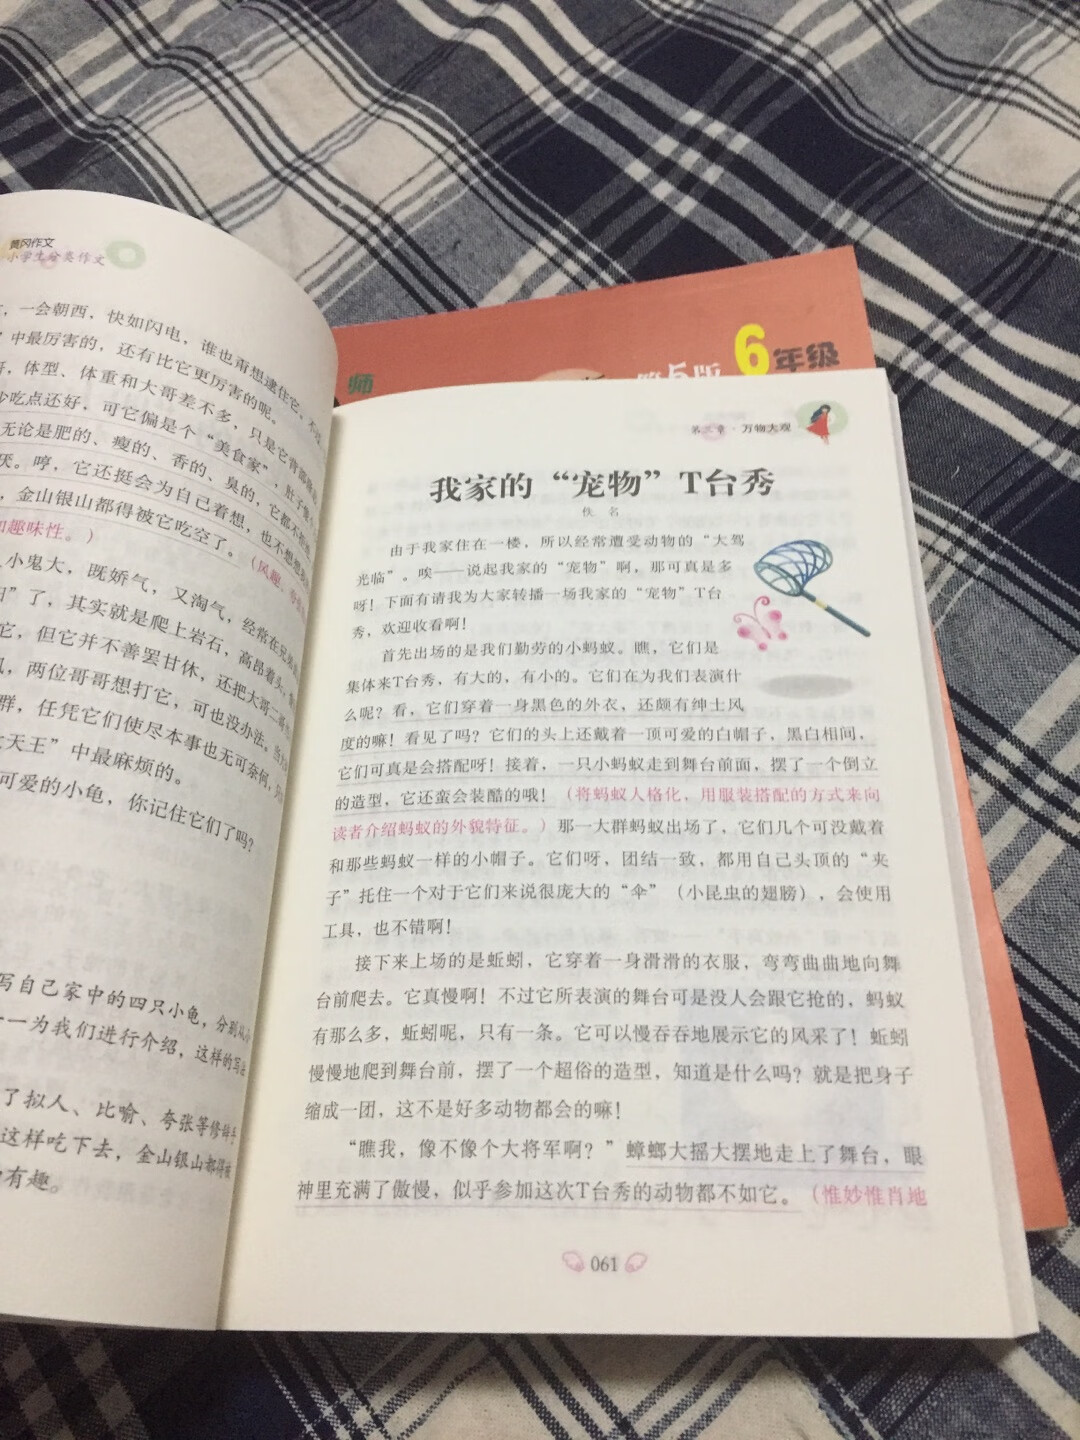 黄冈作文
小学生分类作文
，一会朝西，快如闪电，谁也甭想逮住它，
”中最厉害的，还有比它更厉害的呢。
，体型、体重和大哥差不多，只是它背部
少吃点还好，可它偏是个“美食家”，肚子
无论是肥的、瘦的、香的、臭的，它都不
厌。哼，它还挺会为自己着想，也不想想
，金山银山都得被它吃空了。（风趣、
和趣味性。）
小鬼大，既娇气，又淘气，经常在
”了，其实就是爬上岩石，高昂着头，
它，但它并不善罢甘休，还把大哥二哥
，两位哥哥想打它，可也没办法。
群，任凭它们使尽本事也无可奈何，
天王”中最麻烦的。
可爱的小龟，你记住它们了吗？
写自己家中的四只小龟，分别从
一一为我们进行介绍，这样的写法
了拟人、比喻、夸张等修辞手
这样吃下去，金山银山都得被
有趣。
师
第5版
6年级
第三章·万物大观
我家的“宠物”T台秀
佚 名
由于我家住在一楼，所以经常遭受动物的“大驾
光临”。唉——说起我家的“宠物”啊，那可真是多
呀！下面有请我为大家转播一场我家的“宠物”T台
秀，欢迎收看啊！
首先出场的是我们勤劳的小蚂蚁。瞧，它们是
集体来T台秀，有大的，有小的。它们在为我们表演什
么呢？看，它们穿着一身黑色的外衣，还颇有绅士风
度的嘛！看见了吗？它们的头上还戴着一顶可爱的白帽子，黑白相间，
它们可真是会搭配呀！接着，一只小蚂蚁走到舞台前面，摆了一个倒立
的造型，它还蛮会装酷的哦！（将蚂蚁人格化，用服装搭配的方式来向
读者介绍蚂蚁的外貌特征。）那一大群蚂蚁出场了，它们几个可没戴着
和那些蚂蚁一样的小帽子。它们呀，团结一致，都用自己头顶的“夹
子”托住一个对于它们来说很庞大的“伞”（小昆虫的翅膀），会使用
工具，也不错啊！
接下来上场的是蚯蚓，它穿着一身滑滑的衣服，弯弯曲曲地向舞
台前爬去。它真慢啊！不过它所表演的舞台可是没人会跟它抢的，蚂蚁
有那么多，蚯蚓呢，只有一条。它可以慢吞吞地展示它的风采了！蚯蚓
慢慢地爬到舞台前，摆了一个超俗的造型，知道是什么吗？就是把身子
缩成一团，这不是好多动物都会的嘛！
“瞧我，像不像个大将军啊？”蟑螂大摇大摆地走上了舞台，眼
神里充满了傲慢，似乎参加这次T台秀的动物都不如它。（惟妙惟肖地
061